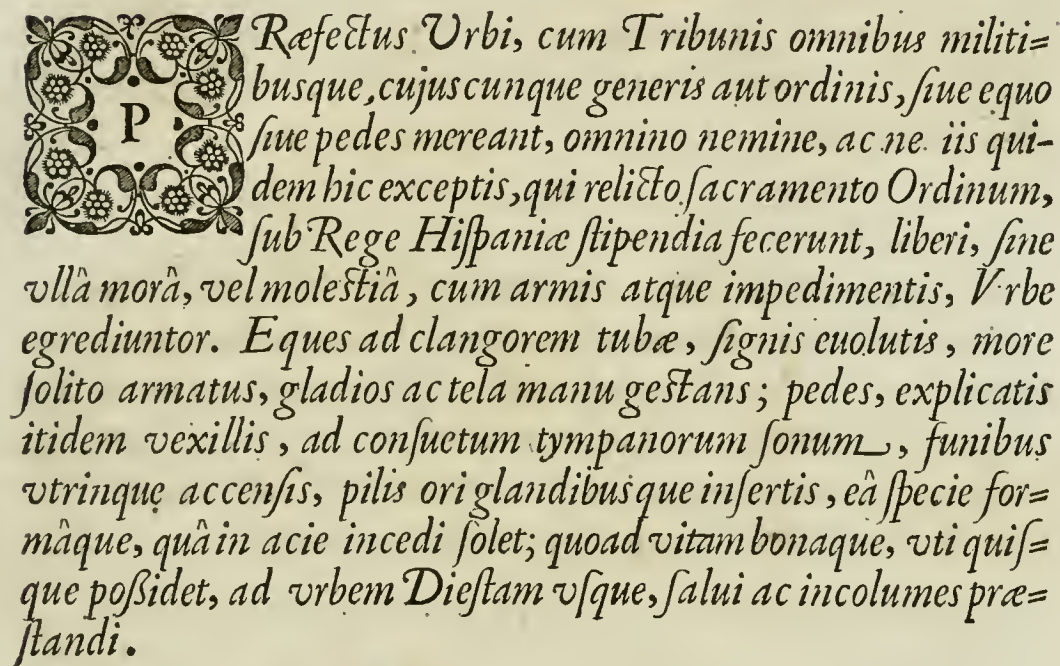 PRæfectus Urbi, cum Tribunis omnibus militi=
busque, cujuscunque generis aut ordinis, ſiue equo
ſiue pedes mereant, omnino nemine, ac ne iis qui-
dem hic exceptis, qui relicto ſacramento Ordinum,
ſub Rege Hiſpaniæ ſtipendia fecerunt, liberi, ſine
vllâ morâ, vel moleſtiâ, cum armis atque impedimentis, Vrbe
egrediuntor. Eques ad clangorem tubæ, ſignis euolutis, more
ſolito armatus, gladios ac tela manu geſtans; pedes, explicatis
itidem vexillis, ad conſuetum tympanorum ſonum, funibus
vtrinque accenſis, pilis ori glandibusque inſertis, eâ ſpecie for=
mâque, quâ in acie incedi ſolet; quoad vitam bonaque, vti quiſ=
que poßidet, ad vrbem Dieſtam vſque, ſalui ac incolumes præ=
ſtandi.